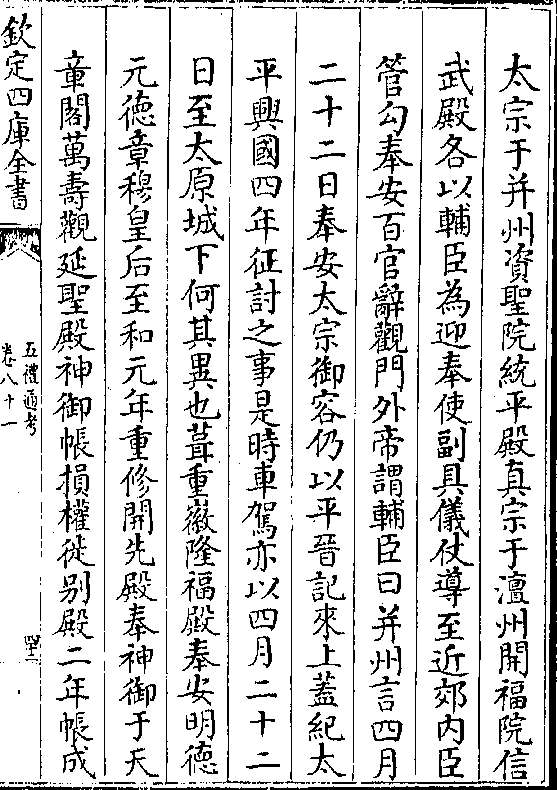 太宗于并州資聖院統平殿真宗于澶州開福院信
武殿各以輔臣為迎奉使副具儀仗導至近郊内臣
管勾奉安百官辭觀門外帝謂輔臣曰并州言四月
二十二日奉安太宗御容仍以平晉記來上蓋紀太
平興國四年征討之事是時車駕亦以四月二十二
日至太原城下何其異也葺重徽隆福殿奉安明德
元德章穆皇后至和元年重修開先殿奉神御于天
章閣萬壽觀延聖殿神御帳損權徙别殿二年帳成
欽定四庫全書
五禮通考
卷八十一